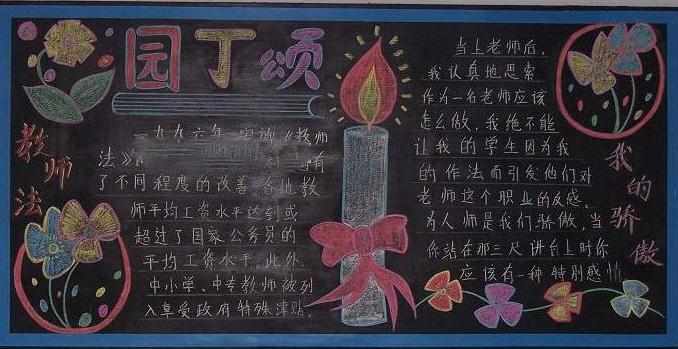 园丁颂
教师法
一九九六年实施《教师
法》
了不同程度的改善 各地教
师平均工资水平达到或
超过了国家公务员的
平均工资水平.此外.
中小学、中专教师被列
入享受政府特殊津贴.
当上老师后,
我认真地思索
作为一名老师应该
怎么做,我绝不能
让我的学生因为我
的作法而引发他们对
老师这个职业的反感.
为人师是我们骄傲,当
你站在那三尺讲台上时你
应该有一种特别感情
我的骄傲